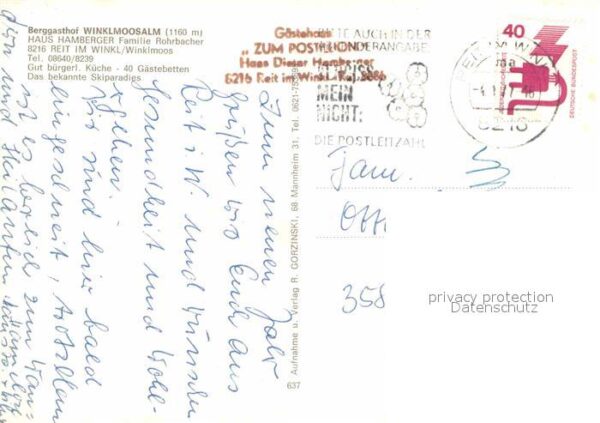 Berggasthof WINKLMOOSALM (1160 m)
HAUS HAMBERGER Familie Rohrbacher
8216 REIT IM WINKL/Winklmoos
Tel. 08640/8239
Gut bürgerl. Küche - 40 Gästebetten
Das bekannte Skiparadies
Gästehaus
„ZUM POSTILLION"
Hans Dieter Hamberger
8216 Reit im Winkl
BITTE AUCH IN DER
ABSENDERANGABE
MEIN
NICHT:
DIE POSTLEITZAHL
8216
40
DEUTSCHE BUNDESPOST
Zum neuen Jahr
grüßen wir Euch aus
Reit i. W. und wünschen
Gesundheit und Wohl-
ergehen.
Wir sind hier bald
eingeschneit, trotzdem
ist es herrlich zum
und
Fam.
Otti
358
Aufnahme u. Verlag R. GORZINSKI, 68 Mannheim 31, Tel. 0621
637
privacy protection
Datenschutz